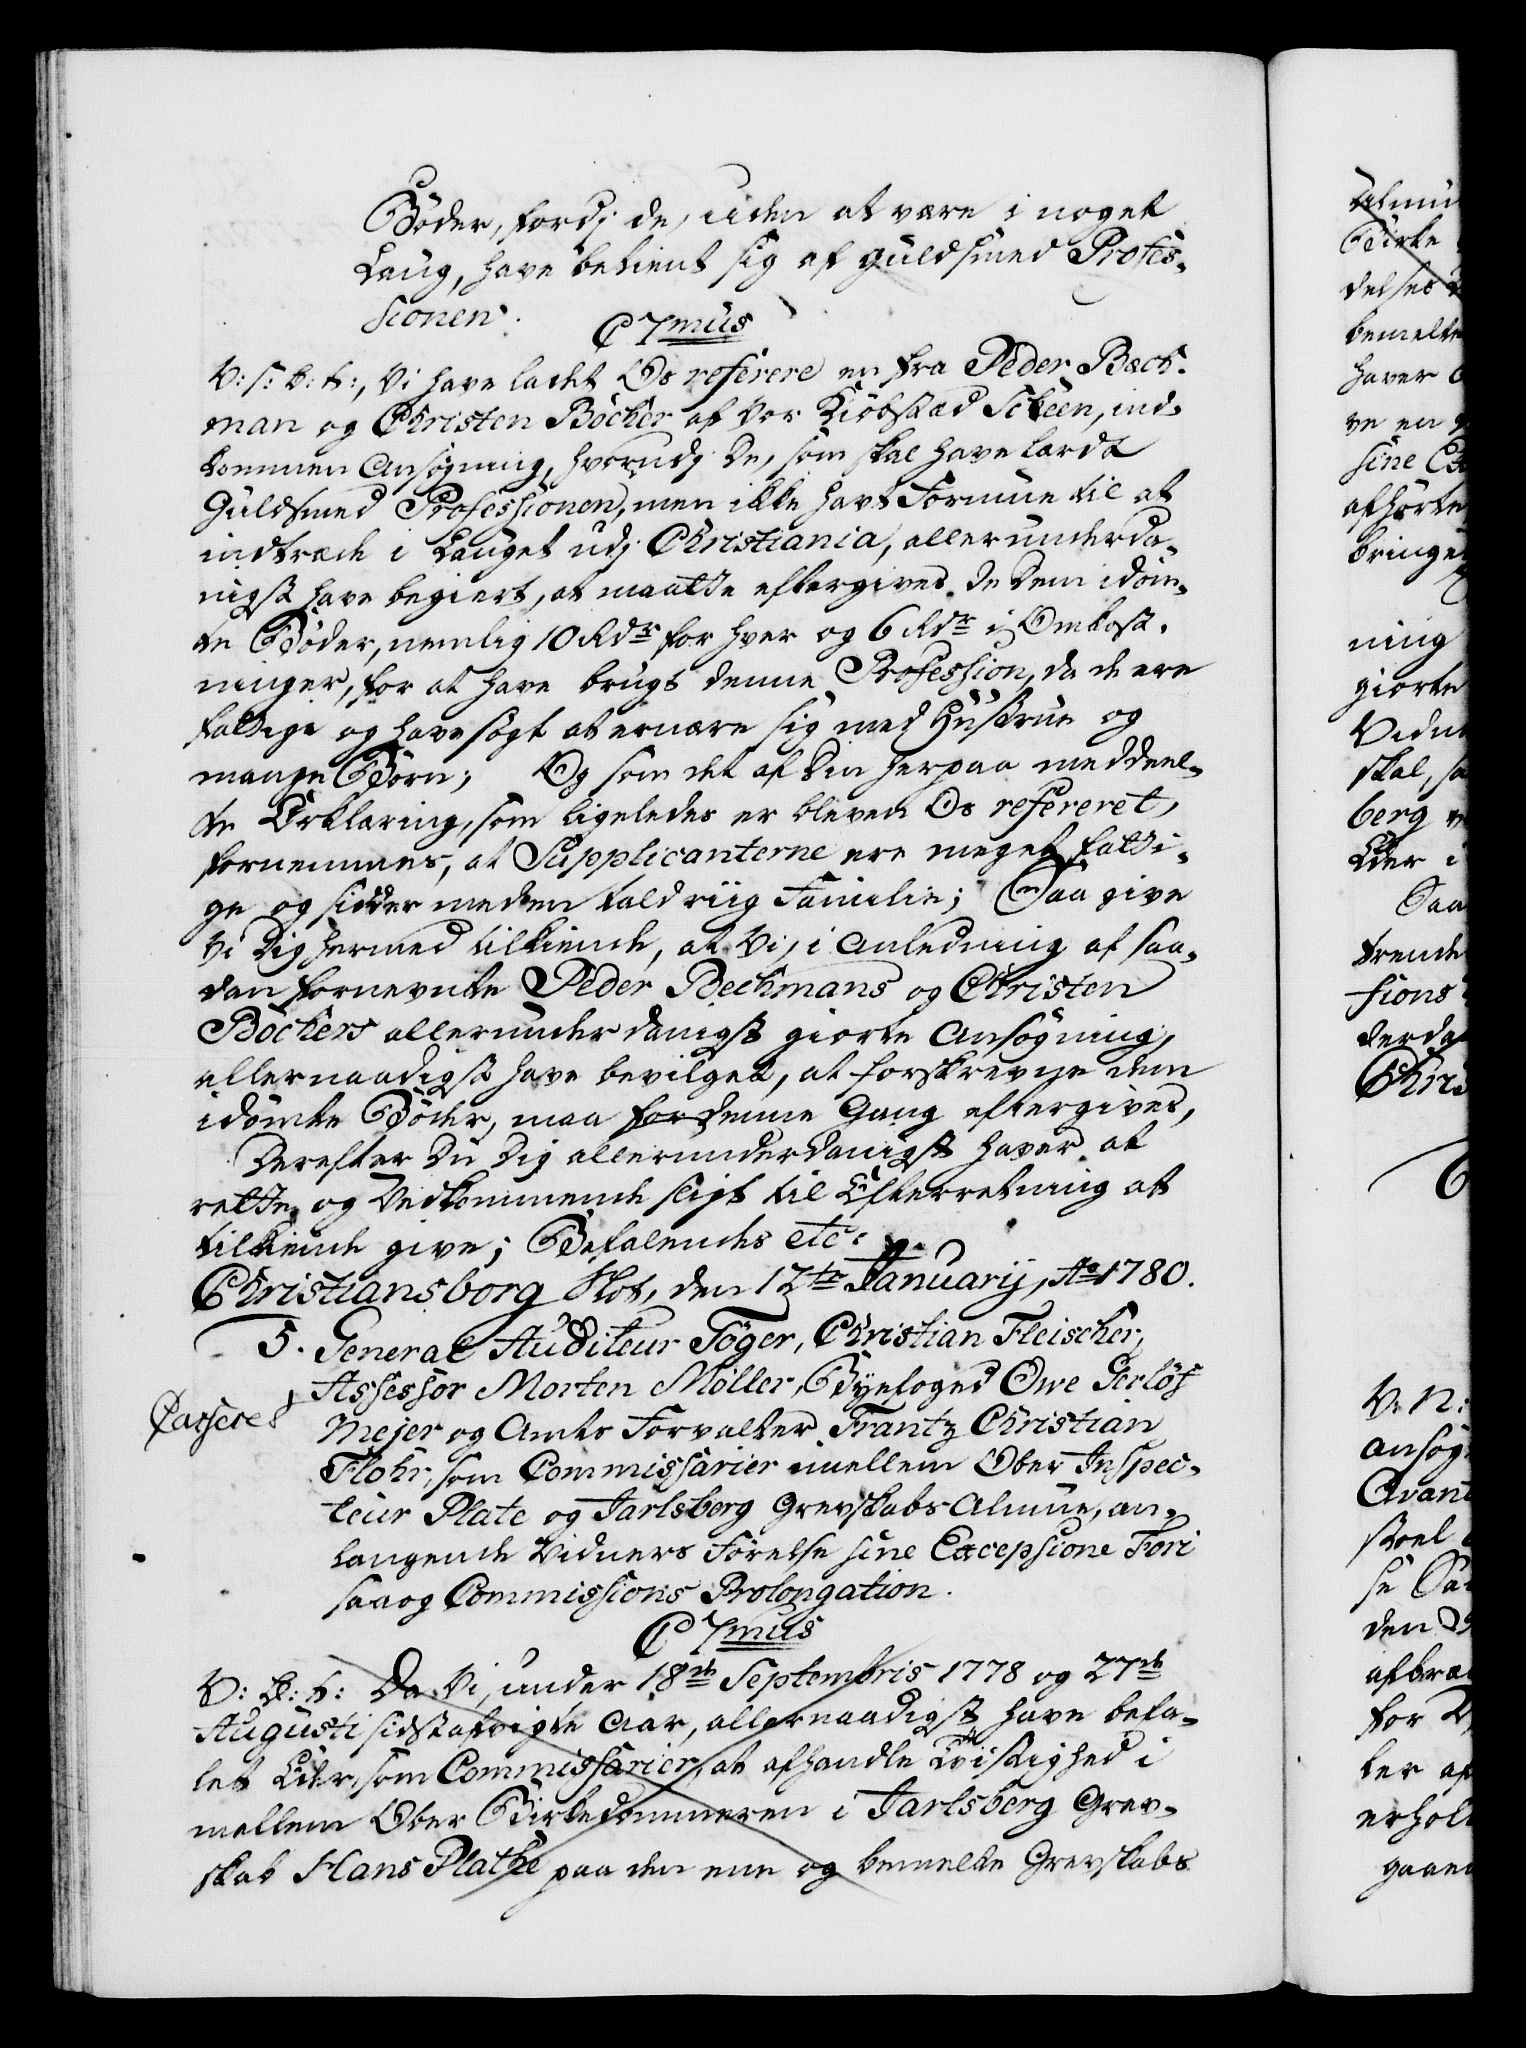 Bøder, fordj de, uden at være i noget
Laug, have betient sig af Guldsmed Profes-
sionen.
C 7mus
V: S: B: H:, Vi have ladet Os referere en fra Peder Bech-
man og Christen Böcher af Vor Kiøbstæd Scheen, ind-
kommen Ansøgning, hvorudj De, som skal have lærdt
Guldsmed Professionen, men ikke havt Formue til at
indtræde i Lauget udj Christiania, allerunderda-
nigst have begiert, at maatte eftergives de Dem idøm-
te Bøder, nemlig 10 Rdr for hver og 6 Rdr i Omkost-
ninger, for at have brugt denne Profession, da de ere
fattige og have søgt at ernære sig med Hustrue og
mange Børn; Og som det af Din herpaa meddeel-
te Erklæring, som ligeledes er bleven Os refereret,
fornemmes, at Supplicanterne ere meget fatti-
ge og sidder med en talriig Familie; Saa give
Vi Dig hermed tilkiende, at Vi, i Anledning af saa-
dan fornevnte Peder Bechmans og Christen
Böchers allerunderdanigst giorte Ansøgning,
allernaadigst have bevilget, at forskrevne dem
idømte Bøder, maa for denne Gang eftergives,
Derefter Du Dig allerunderdanigst haver at
rette og Vedkommende sligt til Efterretning at
tilkiende give; Befalendes etc:
Christiansborg Slot, den 12te Januarij, Ao 1780.
5. General Auditeur Töger, Christian Fleischer,
Assessor Morten Møller, Byefoged Owe Gerløf
Casseret
Mejer og Amts Forvalter Frantz Christian
Flohr, som Commissarier imellem Ober Inspec-
teur Plate og Jarlsberg Grevskabs Almue, an-
langende Vidners Førelse sine Excepsione Fori
saa og Commissions Prolongation.
C 7mus
V: B: H: Da Vi, under 18de Septembris 1778 og 27de
Augusti sidstafvigte Aar, allernaadigst have befa-
let Eder, som Commissarier, at afhandle Tvistighed i
mellem Ober Birkedommeren i Jarlsberg Grev-
skab Hans Plathe paa den ene og bemelte Grevskabs